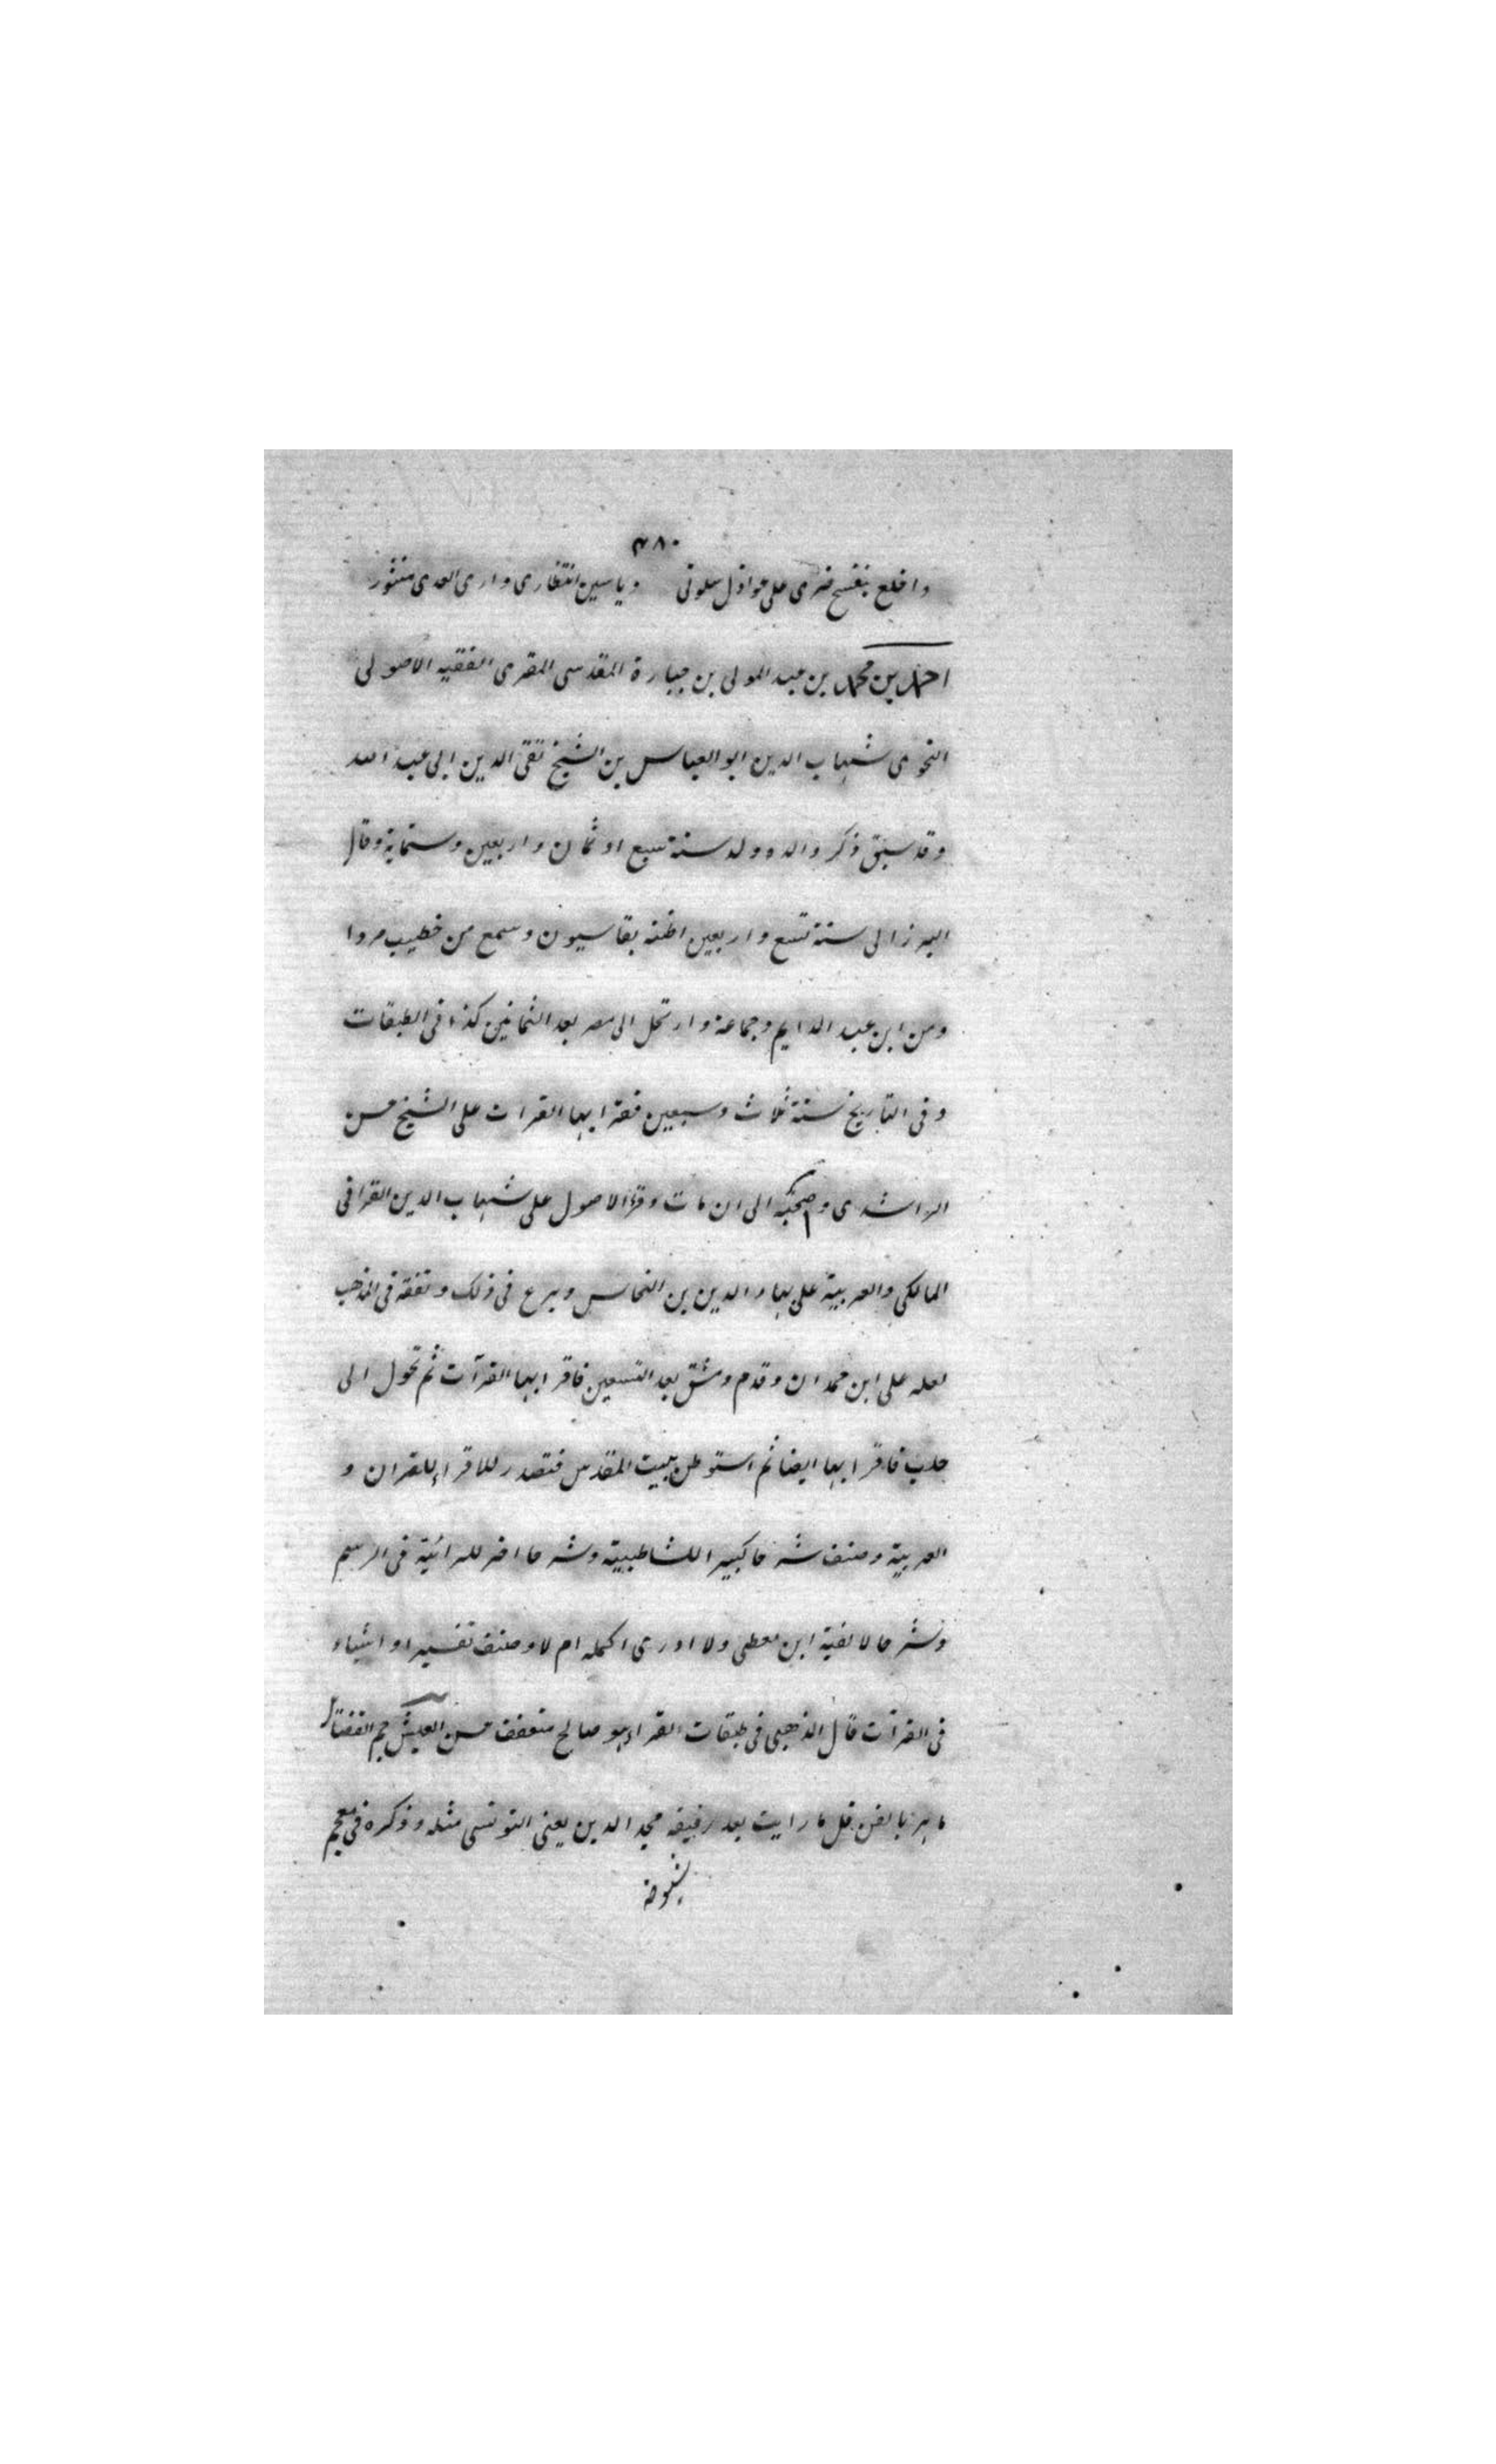 ٣٨٠
واخلع بنفسج ضرى على عواذل سلوتى وياسمين انتظارى وارى العدى منثور
احمد بن محمد بن عبد المولى بن جبارة المقدسى المقرى الفقيه الاصولى
النحوى شهاب الدين ابو العباس بن الشيخ تقى الدين ابى عبد الله
وقد سبق ذكر والده ولد سنة سبع او ثمان واربعين وستماية وقال
البرزالى سنة تسع واربعين اظنه بقاسيون وسمع من خطيب مردا
ومن ابن عبد الدايم وجماعة وارتحل الى مصر بعد الثمانين كذا فى الطبقات
وفى التاريخ سنة ثلاث وسبعين فقرا بها القرات على الشيخ حسن
الراشدى وصحبه الى ان مات وقرأ الاصول على شهاب الدين القرافى
المالكى والعربية على بهاء الدين بن النحاس وبرع فى ذلك وتفقه فى المذهب
لعله على ابن حمدان وقدم دمشق بعد التسعين فاقرا بها القرآت ثم تحول الى
حلب فاقرا بها ايضا ثم استوطن بيت المقدس فتصدر للاقراء للقران و
العربية وصنف شرحا كبيرا للشاطبية وشرحا اخر للرائية فى الرسم
وشرحا لالفية ابن معطى ولا ادرى اكمله ام لا وصنف تفسيرا واشياء
فى القرآت قال الذهبى فى طبقات القراء هو صالح متعفف خشن العيش جم الفضائل
ماهر بالفن قل ما رايت بعد رفيقه مجد الدين يعنى التونسى مثله وذكره فى معجم
شيوخه